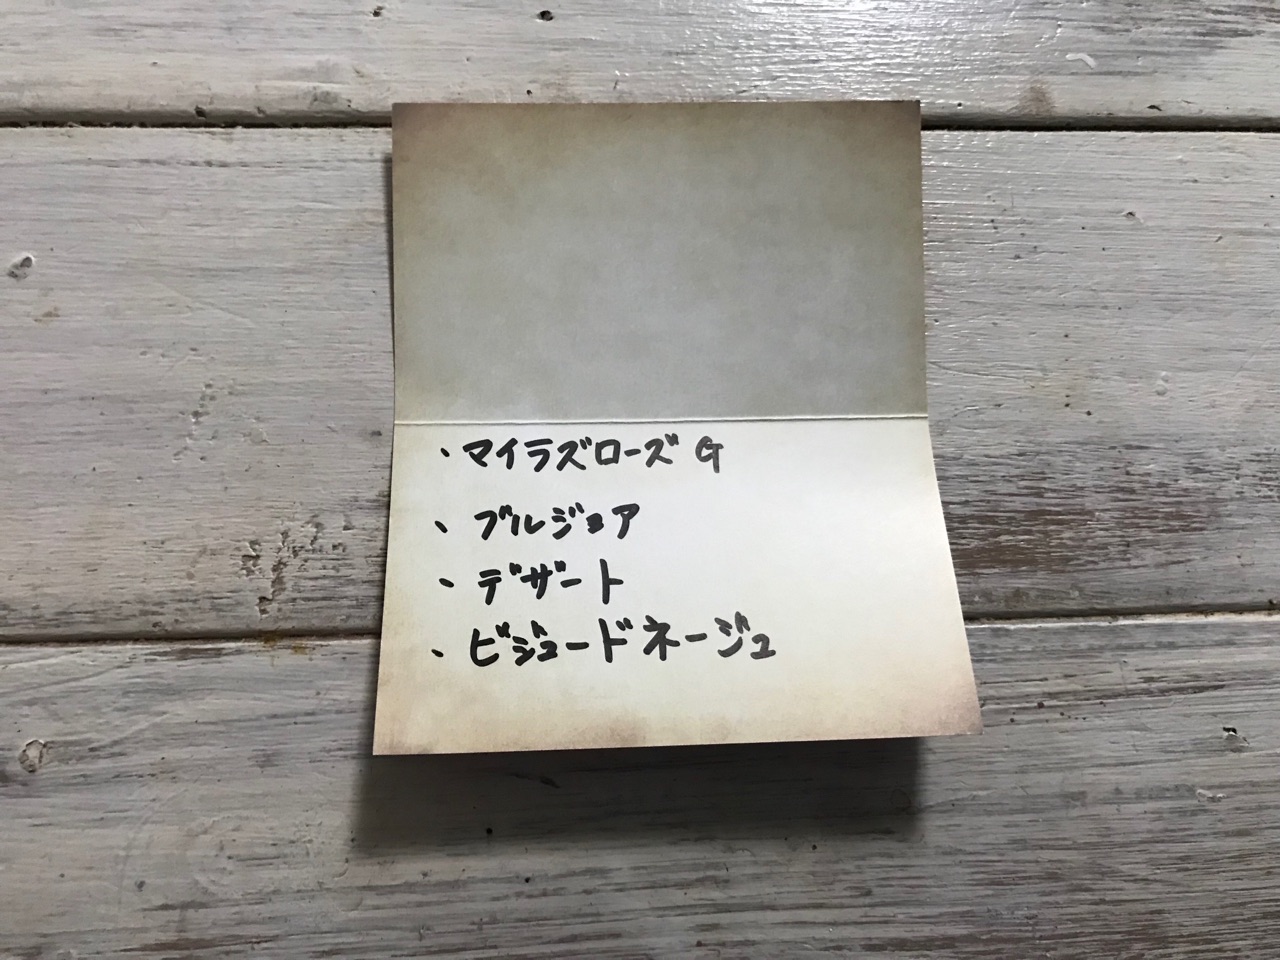 ・マイラズローズ G
・ブルジョア
・デザート
・ビジュードネージュ